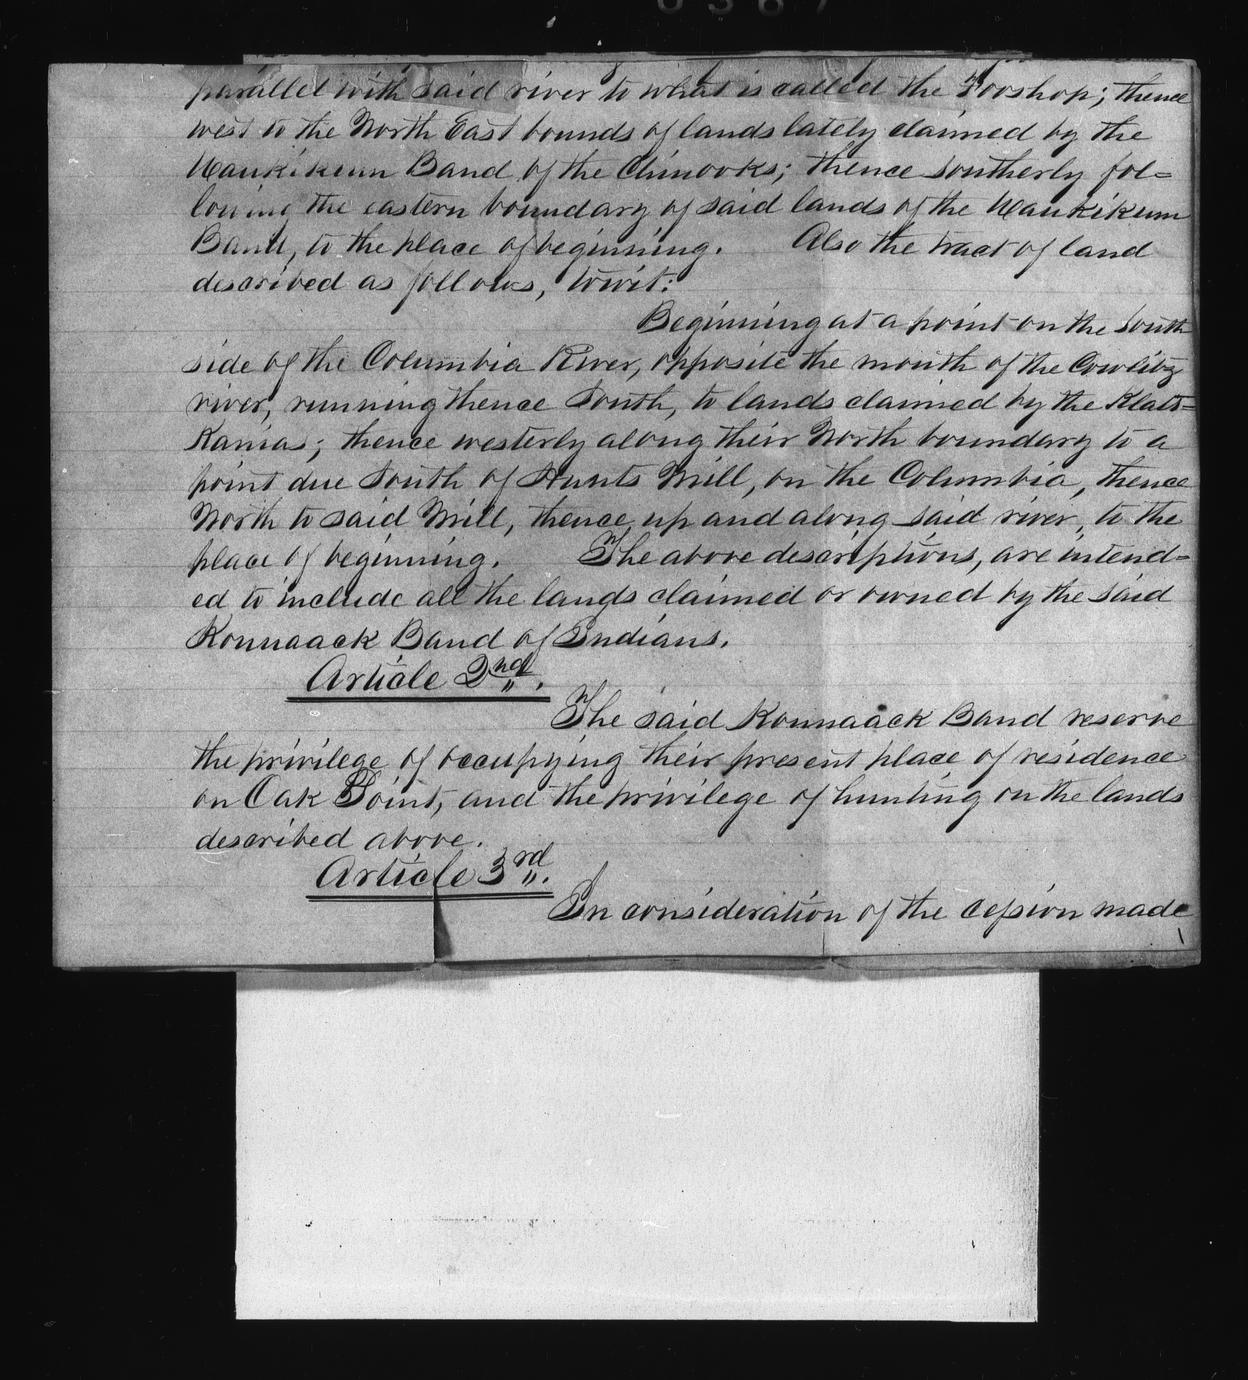 parallel with said river to what is called the Fooshop; thence
west to the North East bounds of lands lately claimed by the
Waukikum Band of the Chinooks; thence southerly fol=
lowing the eastern boundary of said lands of the Waukikum
Band, to the place of beginning. Also the tract of land
described as follows, towit:
Beginning at a point on the South
side of the Columbia River, opposite the mouth of the Cowlitz
river, running thence South, to lands claimed by the Klats=
Kanias; thence westerly along their North boundary to a
point due South of Hunts Mill, on the Columbia, thence
North to said Mill, thence, up and along said river, to the
place of beginning. The above descriptions, are intend=
ed to include all the lands claimed or owned by the said
Konnaack Band of Indians.
Article 2nd.
The said Konnaack Band reserve
the privilege of occupying their present place of residence
on Oak Point, and the privilege of hunting on the lands
described above.
Article 3rd.
In consideration of the cession made